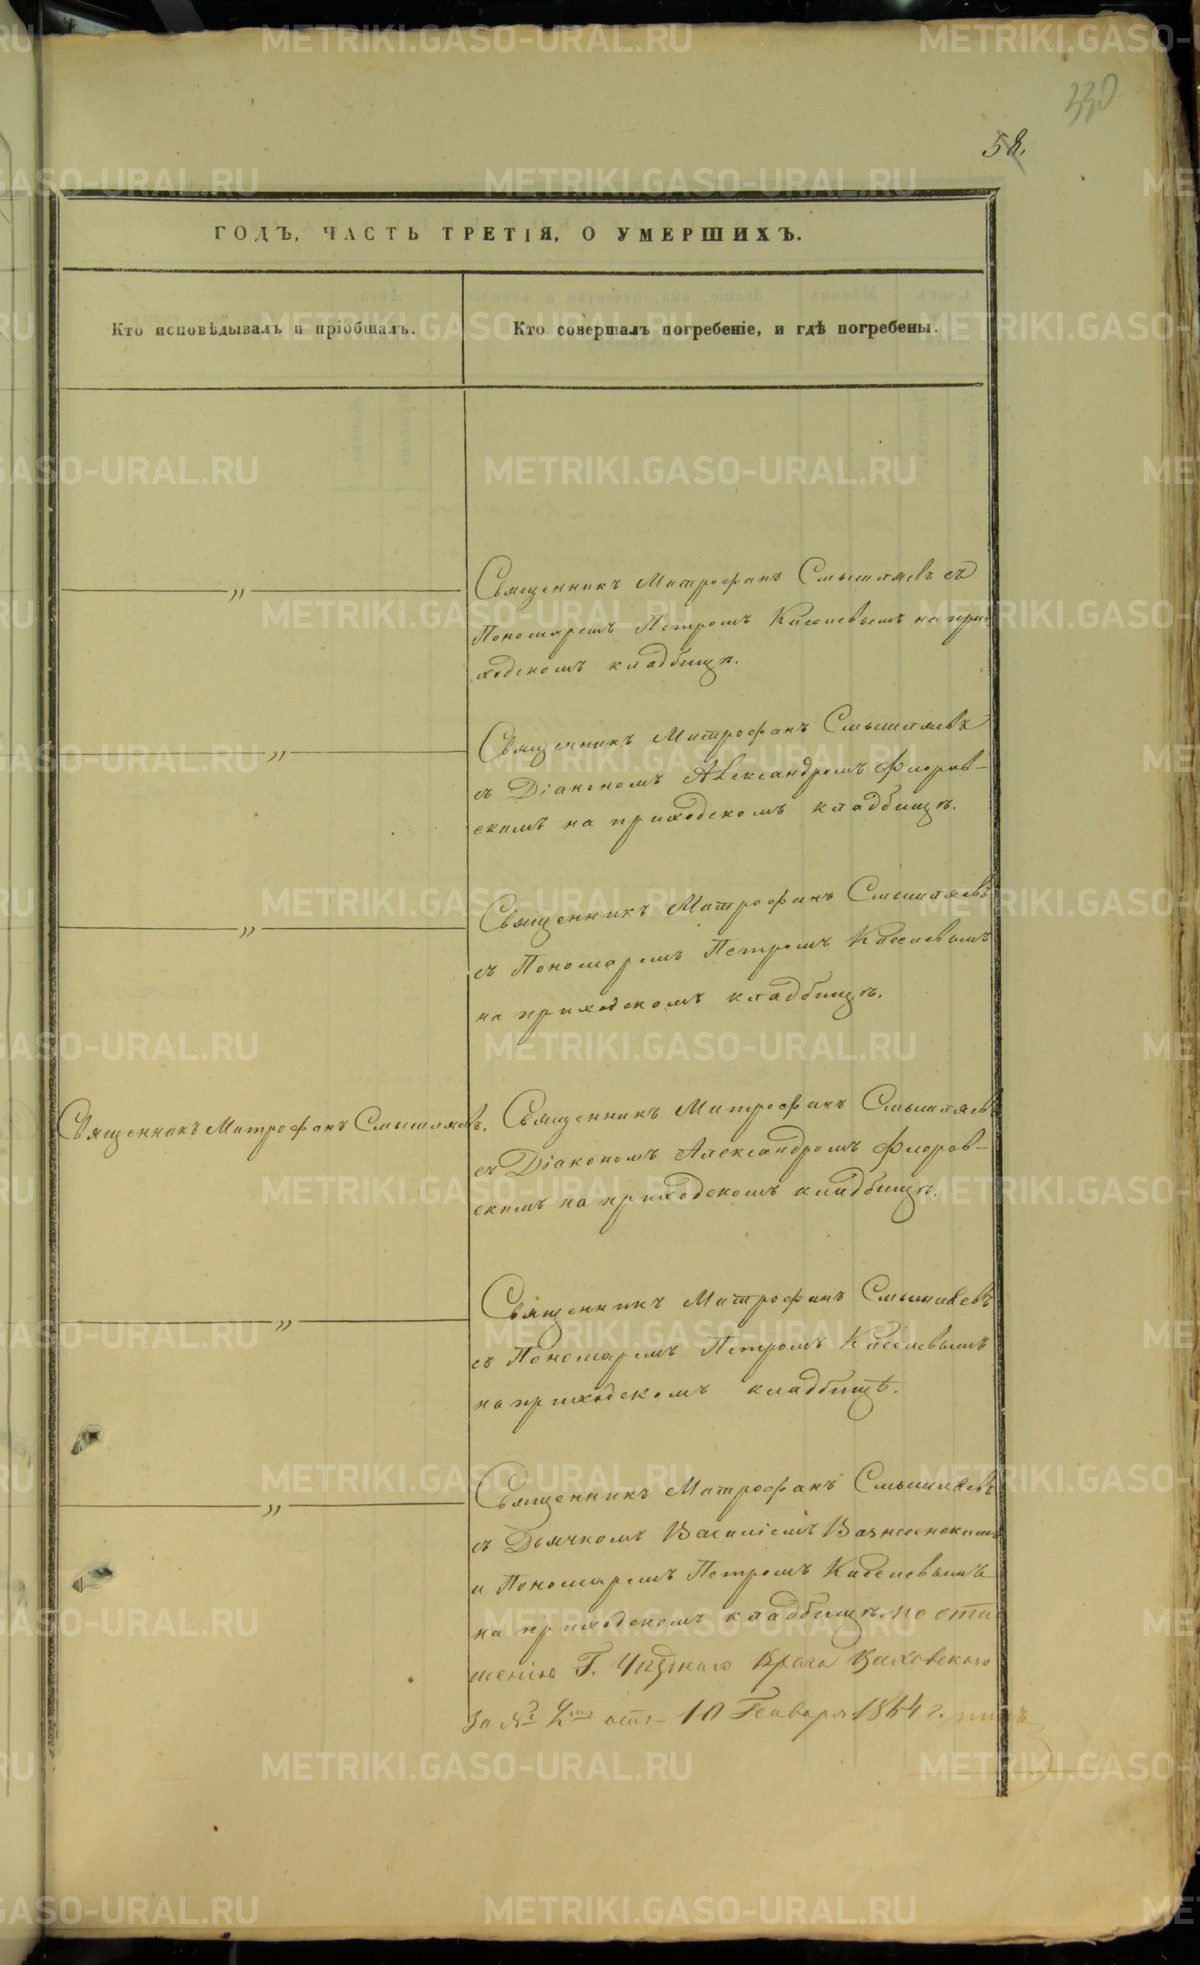 330
58.
ГОДЪ, ЧАСТЬ ТРЕТІЯ, О УМЕРШИХЪ.
Кто исповѣдывалъ и пріобщалъ.
Кто совершалъ погребеніе, и гдѣ погребены.
"
Священникъ Митрофанъ Смышляевъ съ
Пономаремъ Петромъ Киселевымъ на при-
ходскомъ кладбищѣ.
"
Священникъ Митрофанъ Смышляевъ
съ Діакономъ Александромъ Флоров-
скимъ на приходскомъ кладбищѣ.
"
Священникъ Митрофанъ Смышляевъ
съ Пономаремъ Петромъ Киселевымъ
на приходскомъ кладбищѣ.
Священникъ Митрофанъ Смышляевъ.
Священникъ Митрофанъ Смышляевъ
съ Діакономъ Александромъ Флоров-
скимъ на приходскомъ кладбищѣ.
"
Священникъ Митрофанъ Смышляевъ
съ Пономаремъ Петромъ Киселевымъ
на приходскомъ кладбищѣ.
"
Священникъ Митрофанъ Смышляевъ
съ Дьячкомъ Василіемъ Вознесенскимъ
и Пономаремъ Петромъ Киселевымъ
на приходскомъ кладбищѣ. по отно
шенію Г. Уѣзднаго Врача
За № 10 Генваря 1864 г.
METRIKI.GASO-URAL.RU